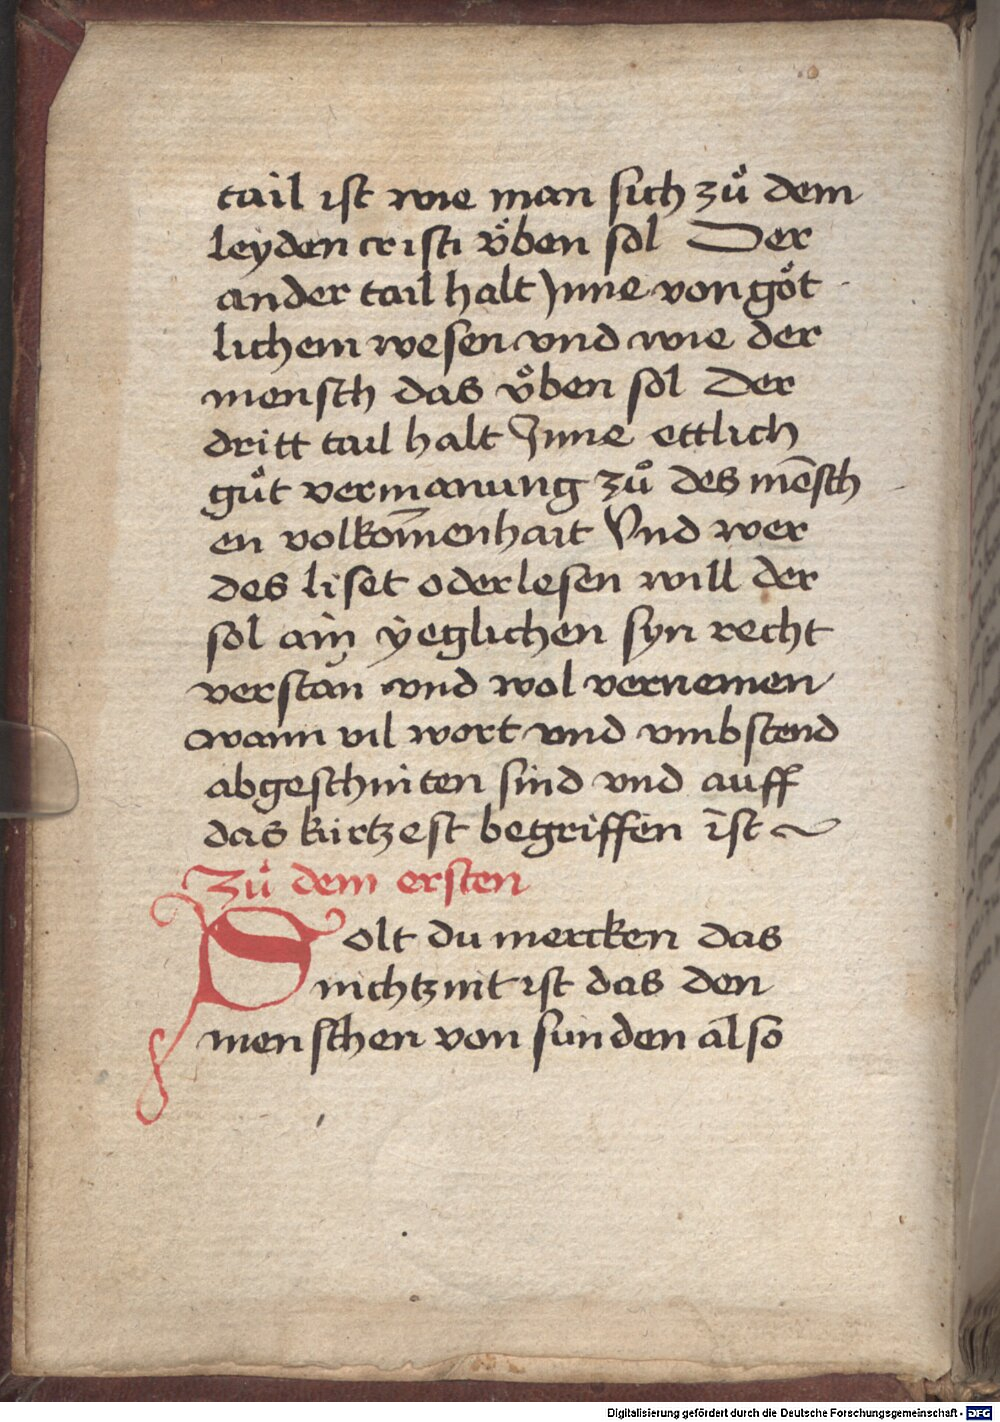 tail ist wie man sich zuͦ dem
leyden cristi vͤben sol Der
ander tail halt Jnne von goͤt
lichem wesen vnd wie der
mensch das vͤben sol Der
dritt tail halt Jnne ettlich
guͤt vermanung zuͦ des mēsch
en volkom̄enhait Vnd wer
des liset oder lesen will der
sol ain yeglichen syn recht
verstan vnd wol vernemen
wann vil wort vnd vmbstend
abgeschniten sind vnd auff
das kürtzest begriffen ist
Zuͦ dem ersten
Solt du mercken das
nichtznit ist das den
menschen von sünden also
Digitalisierung gefördert durch die Deutsche Forschungsgemeinschaft - DFG